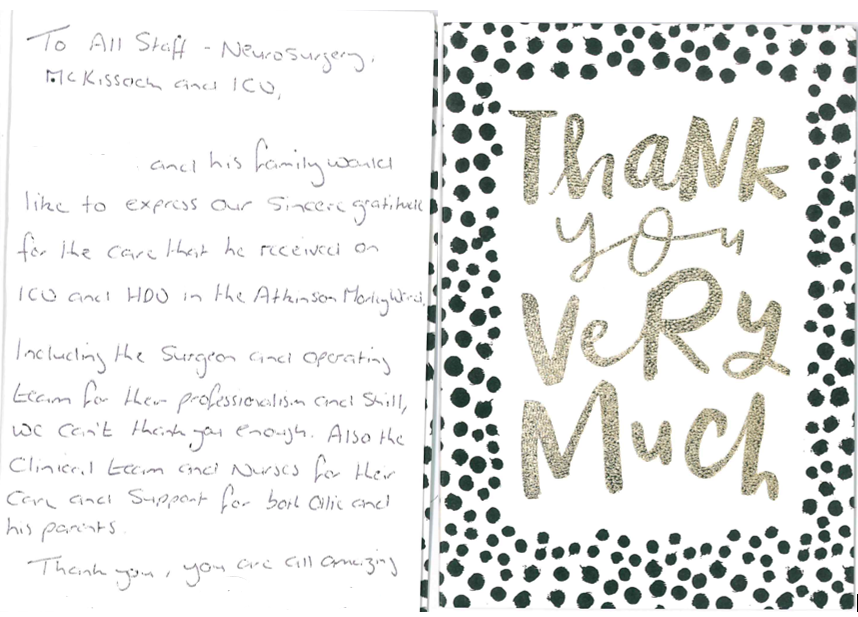 To All Staff - Neurosurgery,
McKissock and ICU,
and his family would
like to express our sincere gratitude
for the care that he received on
ICU and HDU in the Atkinson Morley Wing.
Including the surgeon and operating
team for their professionalism and skill,
we can't thank you enough. Also the
Clinical team and Nurses for their
care and support for both Ollie and
his parents.
Thank you, you are all amazing
Thank
you
VeRy
Much